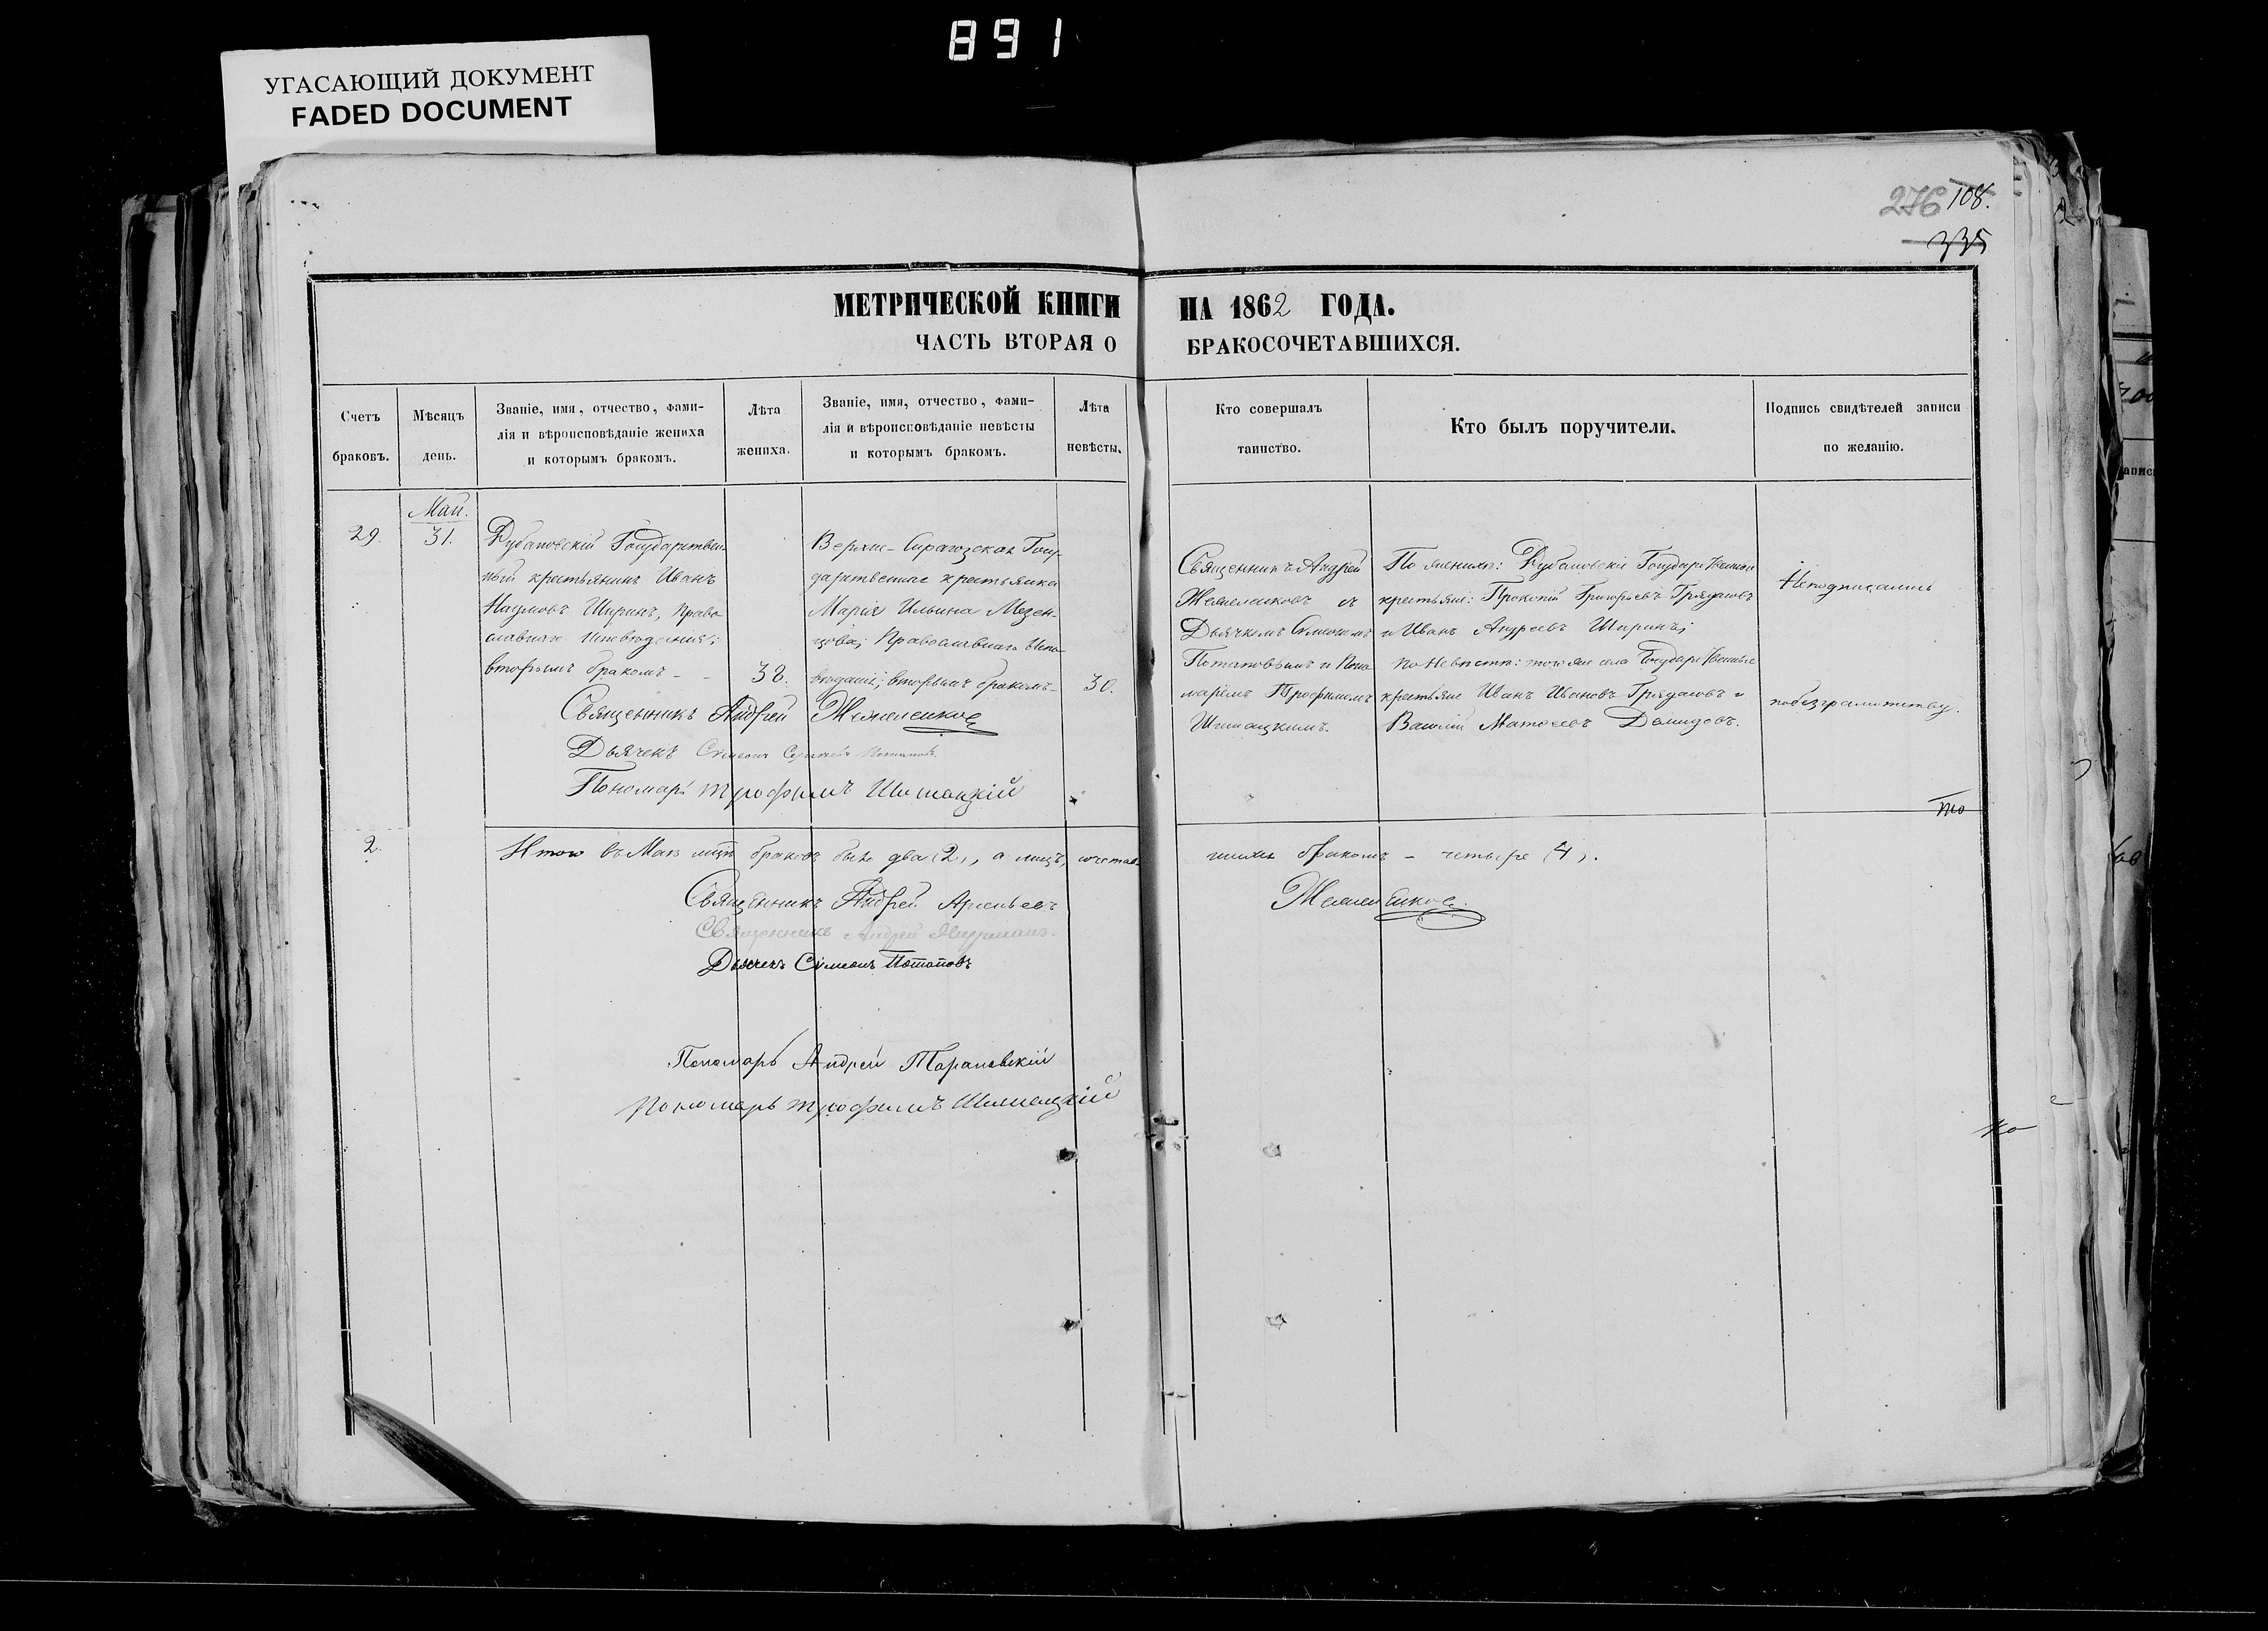 891
УГАСАЮЩИЙ ДОКУМЕНТ
FADED DOCUMENT
276 108.
335
МЕТРИЧЕСКОЙ КНИГИ НА 1862 ГОДА.
ЧАСТЬ ВТОРАЯ О БРАКОСОЧЕТАВШИХСЯ.
Счетъ браковъ.
Мѣсяцъ день.
Званіе, имя, отчество, фами-
лія и вѣроисповѣданіе жениха
и которымъ бракомъ.
Лѣта жениха.
Званіе, имя, отчество, фами-
лія и вѣроисповѣданіе невѣсты
и которымъ бракомъ.
Лѣта невѣсты.
Кто совершалъ
таинство.
Кто былъ поручители.
Подпись свидѣтелей записи
по желанію.
29.
Маи.
31.
Рубановскій Государствен-
ный крестьянинъ Иванъ
Наумовъ Ширинъ, Право-
славнаго Исповѣданія;
вторымъ бракомъ - -
38.
Верхне-Сирагозская Госу-
дарственная крестьянка
Марія Ильина Мезен-
цова; Православнаго Испо-
вѣданія; вторымъ бракомъ-
30.
Священникъ Андрей
съ
Дьячкомъ Симеономъ
Потаповымъ и Поно-
маремъ Трофимомъ
Шишацкимъ.
По женихѣ: Рубановскіе Государственные
крестьяне: Прокопій Григорьевъ
и Иванъ Андреевъ Ширинъ;
по Невѣстѣ: того же села Государственные
крестьяне Иванъ Ивановъ и
Василій Матвеевъ Демидовъ.
Неподписались
побезграмотству.
Священникъ Андрей
Дьячекъ Симеонъ Потаповъ.
Пономарь Трофимъ Шишацкій
2.
Итого въ Маѣ мцѣ браковъ было два (2), а лицъ, сочетав-
шихся бракомъ - четыре (4).
Священникъ Андрей Арсеньевъ
Священникъ Андрей
Дьячекъ Симеонъ Потаповъ
Пономарь Андрей Тарановскій
Пономарь Трофимъ Шишацкій